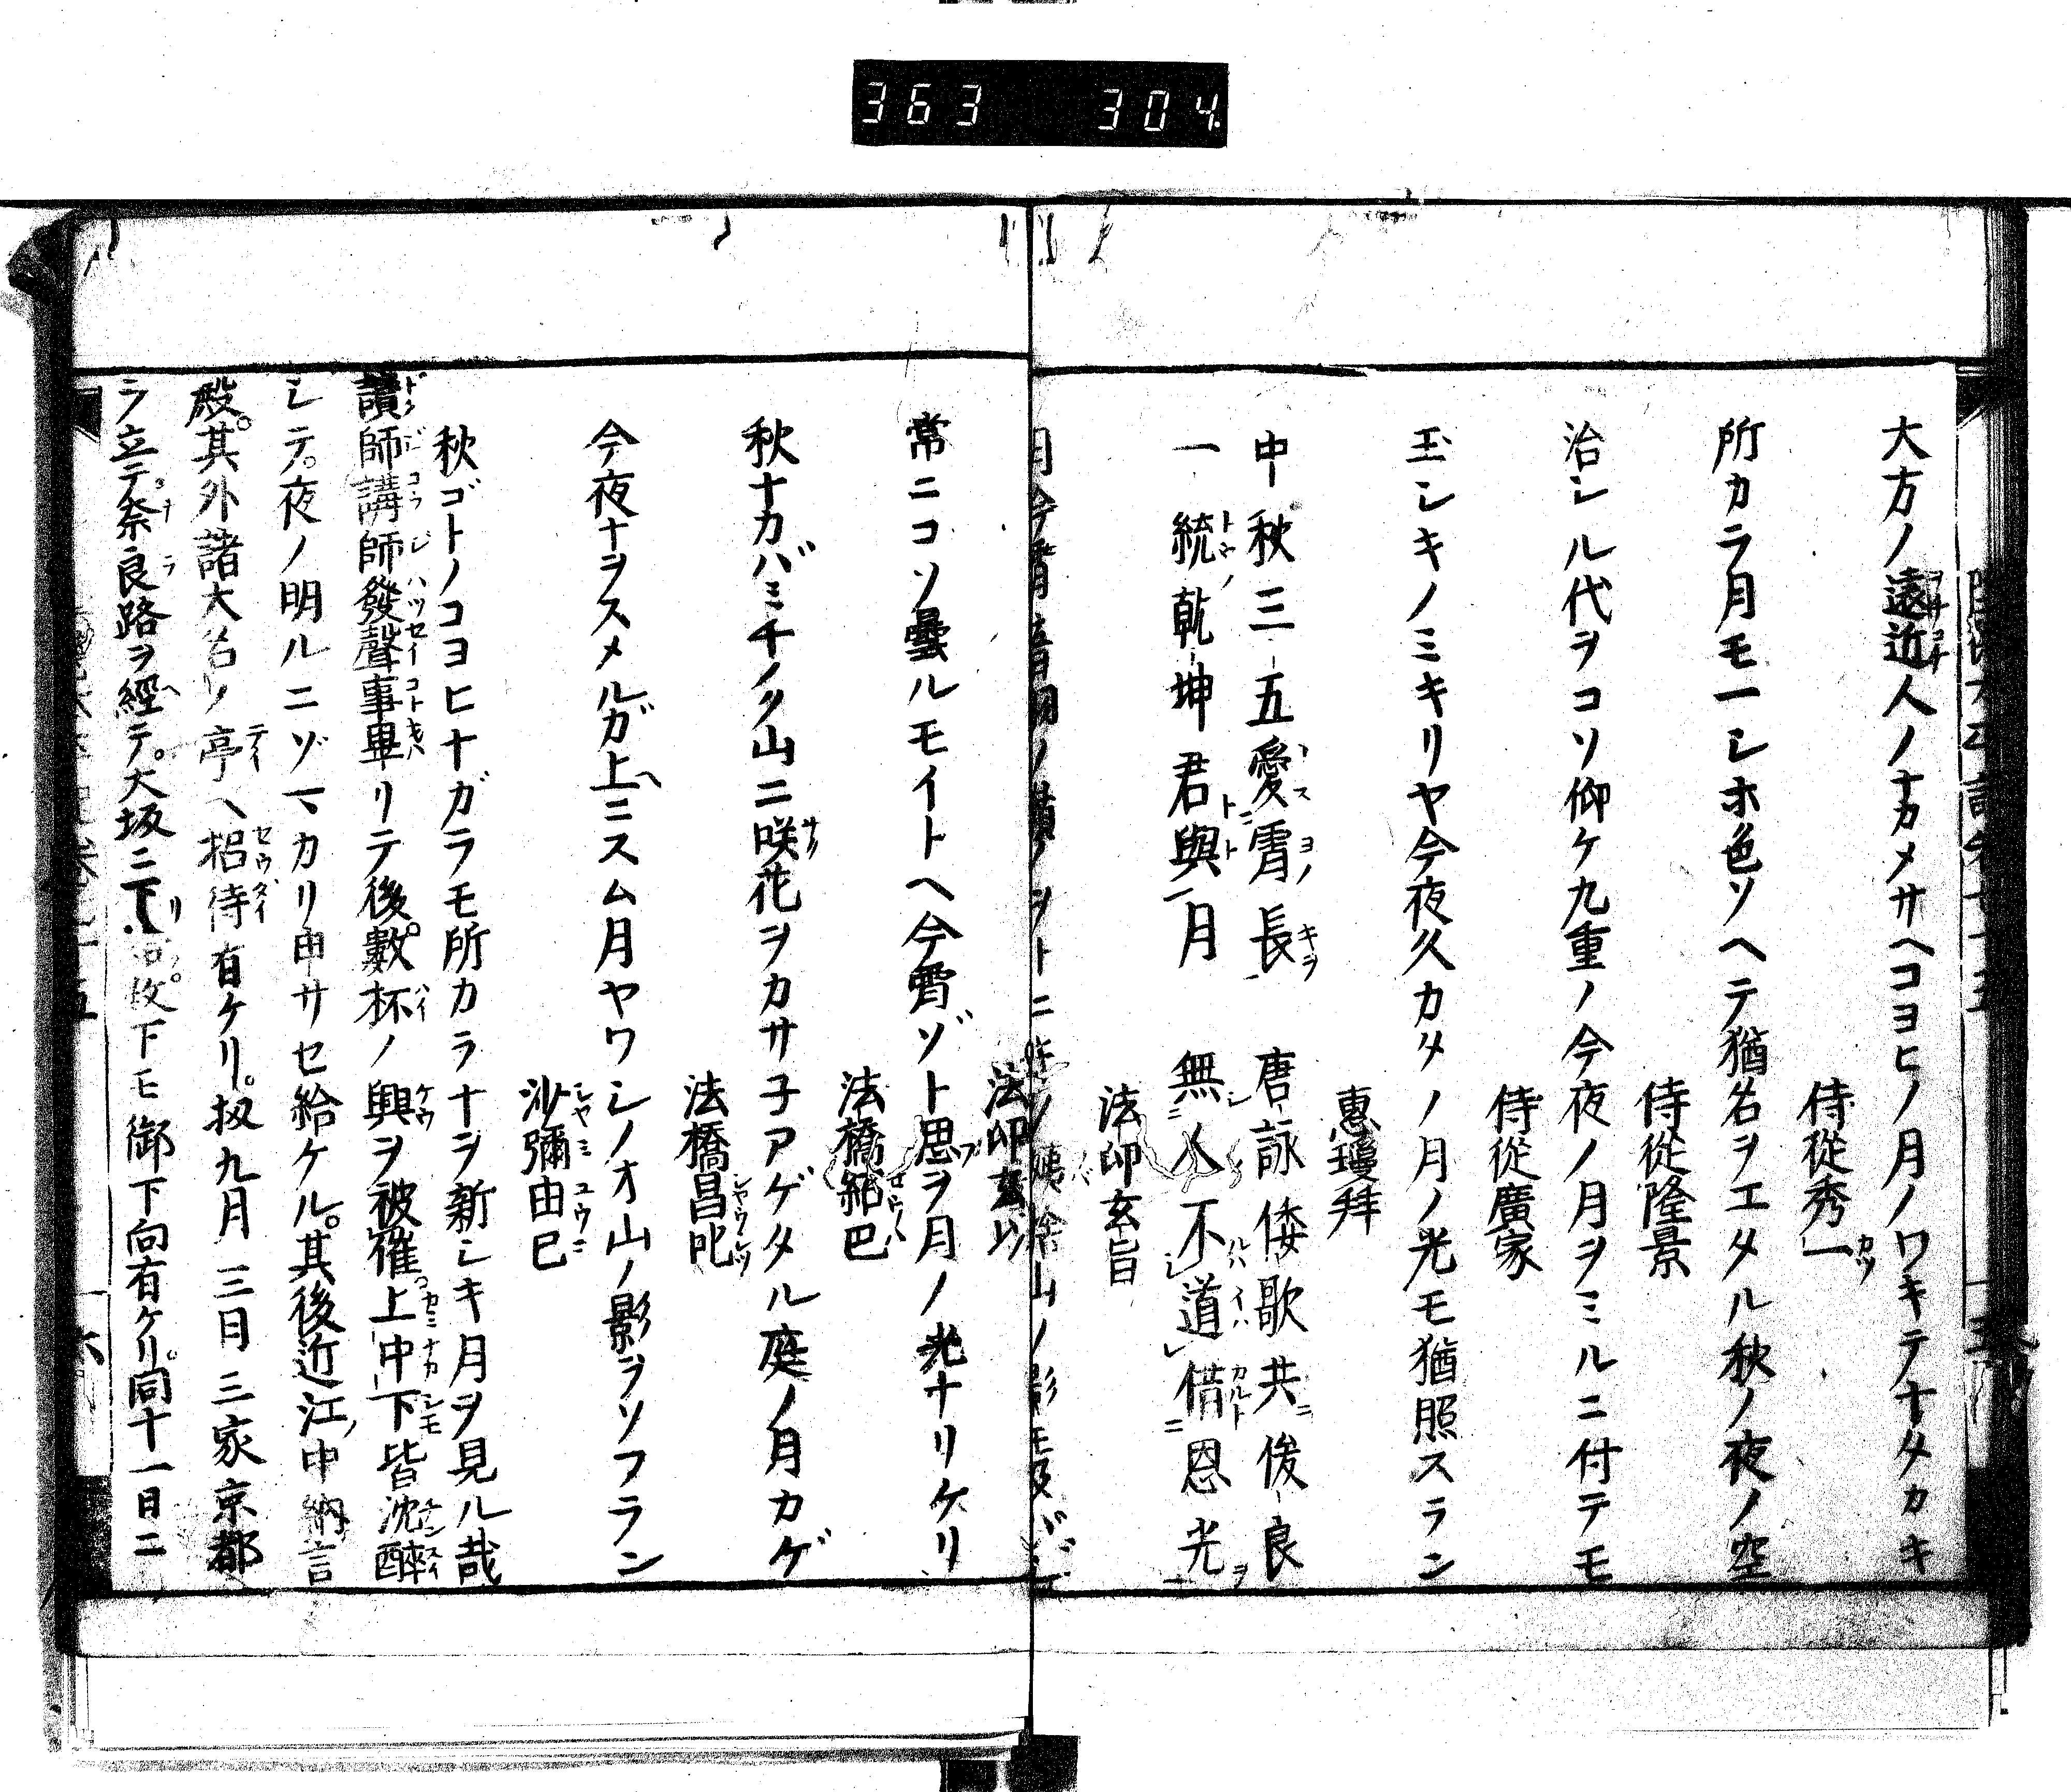 363 304
大方ノ遠近人ノナカメサヘコヨヒノ月ノワキテナタカキ
侍從秀一
所カラ月モ一シホ色ソヘテ猶名ヲエタル秋ノ夜ノ空
侍從隆景
治シル代ヲコソ仰ケ九重ノ今夜ノ月ヲミルニ付テモ
侍從廣家
玉シキノミキリヤ今夜久カタノ月ノ光モ猶照スラン
惠瓊拜
中秋三五愛霄長 唐詠倭歌共俊良
一統乾坤君與月 無人不道借恩光
法印玄旨
月今霄
山ノ影モ及バジ
法印玄以
常ニコソ曇ルモイトヘ今霄ゾト思ヲ月ノ光ナリケリ
法橋紹巴
秋ナカバミチノク山ニ咲花ヲカサ子アゲタル庭ノ月カゲ
法橋昌叱
今夜ナヲスメルガ上ニスム月ヤワシノオ山ノ影ヲソフラン
沙彌由己
秋ゴトノコヨヒナガラモ所カラナヲ新シキ月ヲ見ル哉
讀師講師發聲事畢リテ後數杯ノ興ヲ被催上中下皆沈醉
シテ。夜ノ明ルニゾマカリ申サセ給ケル。其後近江ノ中納言
殿。其外諸大名ノ亭ヘ招待有ケリ。扨九月三日三家京都
ヲ立テ奈良路ヲ經テ。大坂ニ下下モ御下向有ケリ。同十一日ニ